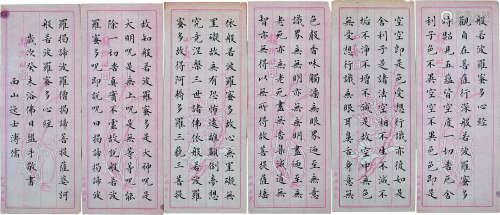 般若波羅蜜多心經
觀自在菩薩行深般若波羅蜜多
時照見五蘊皆空度一切苦厄舍
利子色不異空空不異色色即是
空空即是色受想行識亦復如是
舍利子是諸法空相不生不滅不
垢不淨不增不減是故空中無色
無受想行識無眼耳鼻舌身意無
色聲香味觸法無眼界乃至無意
識界無無明亦無無明盡乃至無
老死亦無老死盡無苦集滅道無
智亦無得以無所得故菩提薩埵
依般若波羅蜜多故心無罣礙無
罣礙故無有恐怖遠離顛倒夢想
究竟涅槃三世諸佛依般若波羅
蜜多故得阿耨多羅三藐三菩提
故知般若波羅蜜多是大神呪是
大明呪是無上呪是無等等呪能
除一切苦真實不虛故說般若波
羅蜜多呪即說呪曰揭諦揭諦波
羅揭諦波羅僧揭諦菩提薩婆訶
般若波羅蜜多心經
歲次癸未浴佛日盥手敬書
西山逸士溥儒